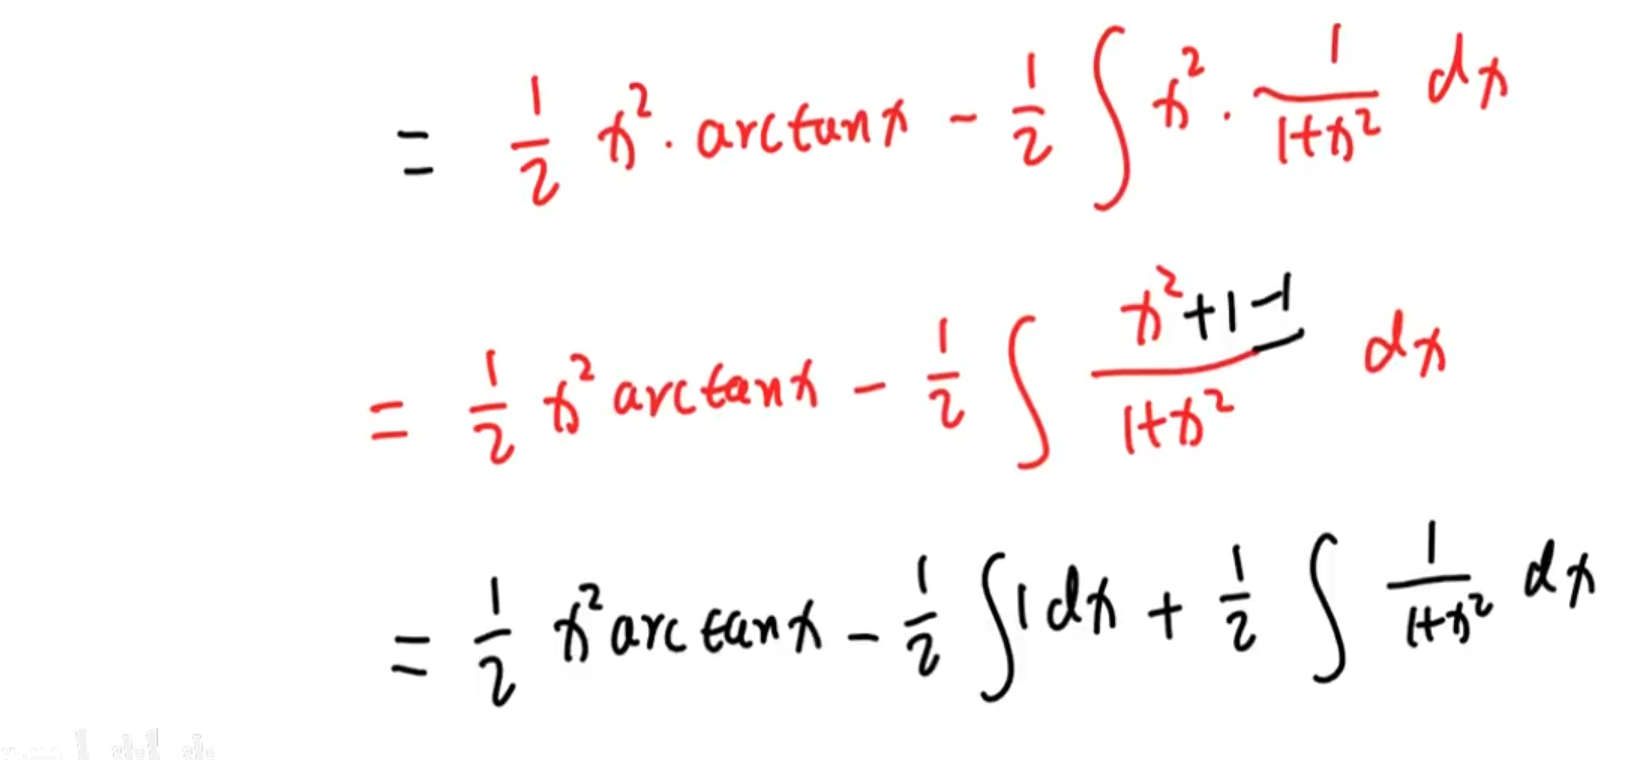 = 1/2 x² · arctanx - 1/2 ∫ x² · 1/(1+x²) dx
= 1/2 x² arctanx - 1/2 ∫ (x²+1-1)/(1+x²) dx
= 1/2 x² arctanx - 1/2 ∫ 1 dx + 1/2 ∫ 1/(1+x²) dx